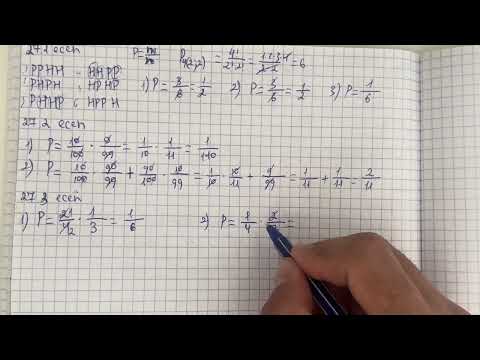 27.1 есеп P=m/n P₄(2;2)=4!/2!·2!=1·2·3·4/2·2=6
1) PPHH 4 HHPP 1) P=3/6=1/2 2) P=3/6=1/2 3) P=1/6
2 PHPH 5 HPHP
3 PHHP 6 HPPH
27.2 есеп
1) P=10/100·9/99=1/10·1/11=1/110
2) P=10/100·90/99+90/100·10/99=1/10·10/11+9/99=1/11+1/11=2/11
27.3 есеп
1) P=21/42·1/3=1/6 2) P=1/4·2/ =